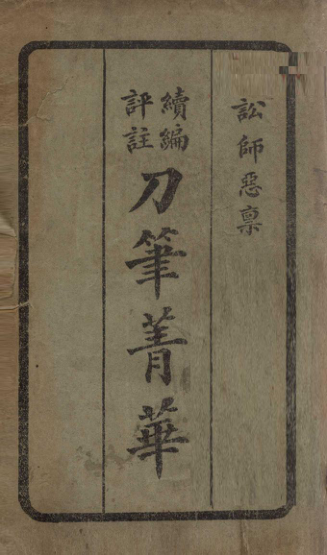 訟師惡禀
續編
評註
刀筆菁華